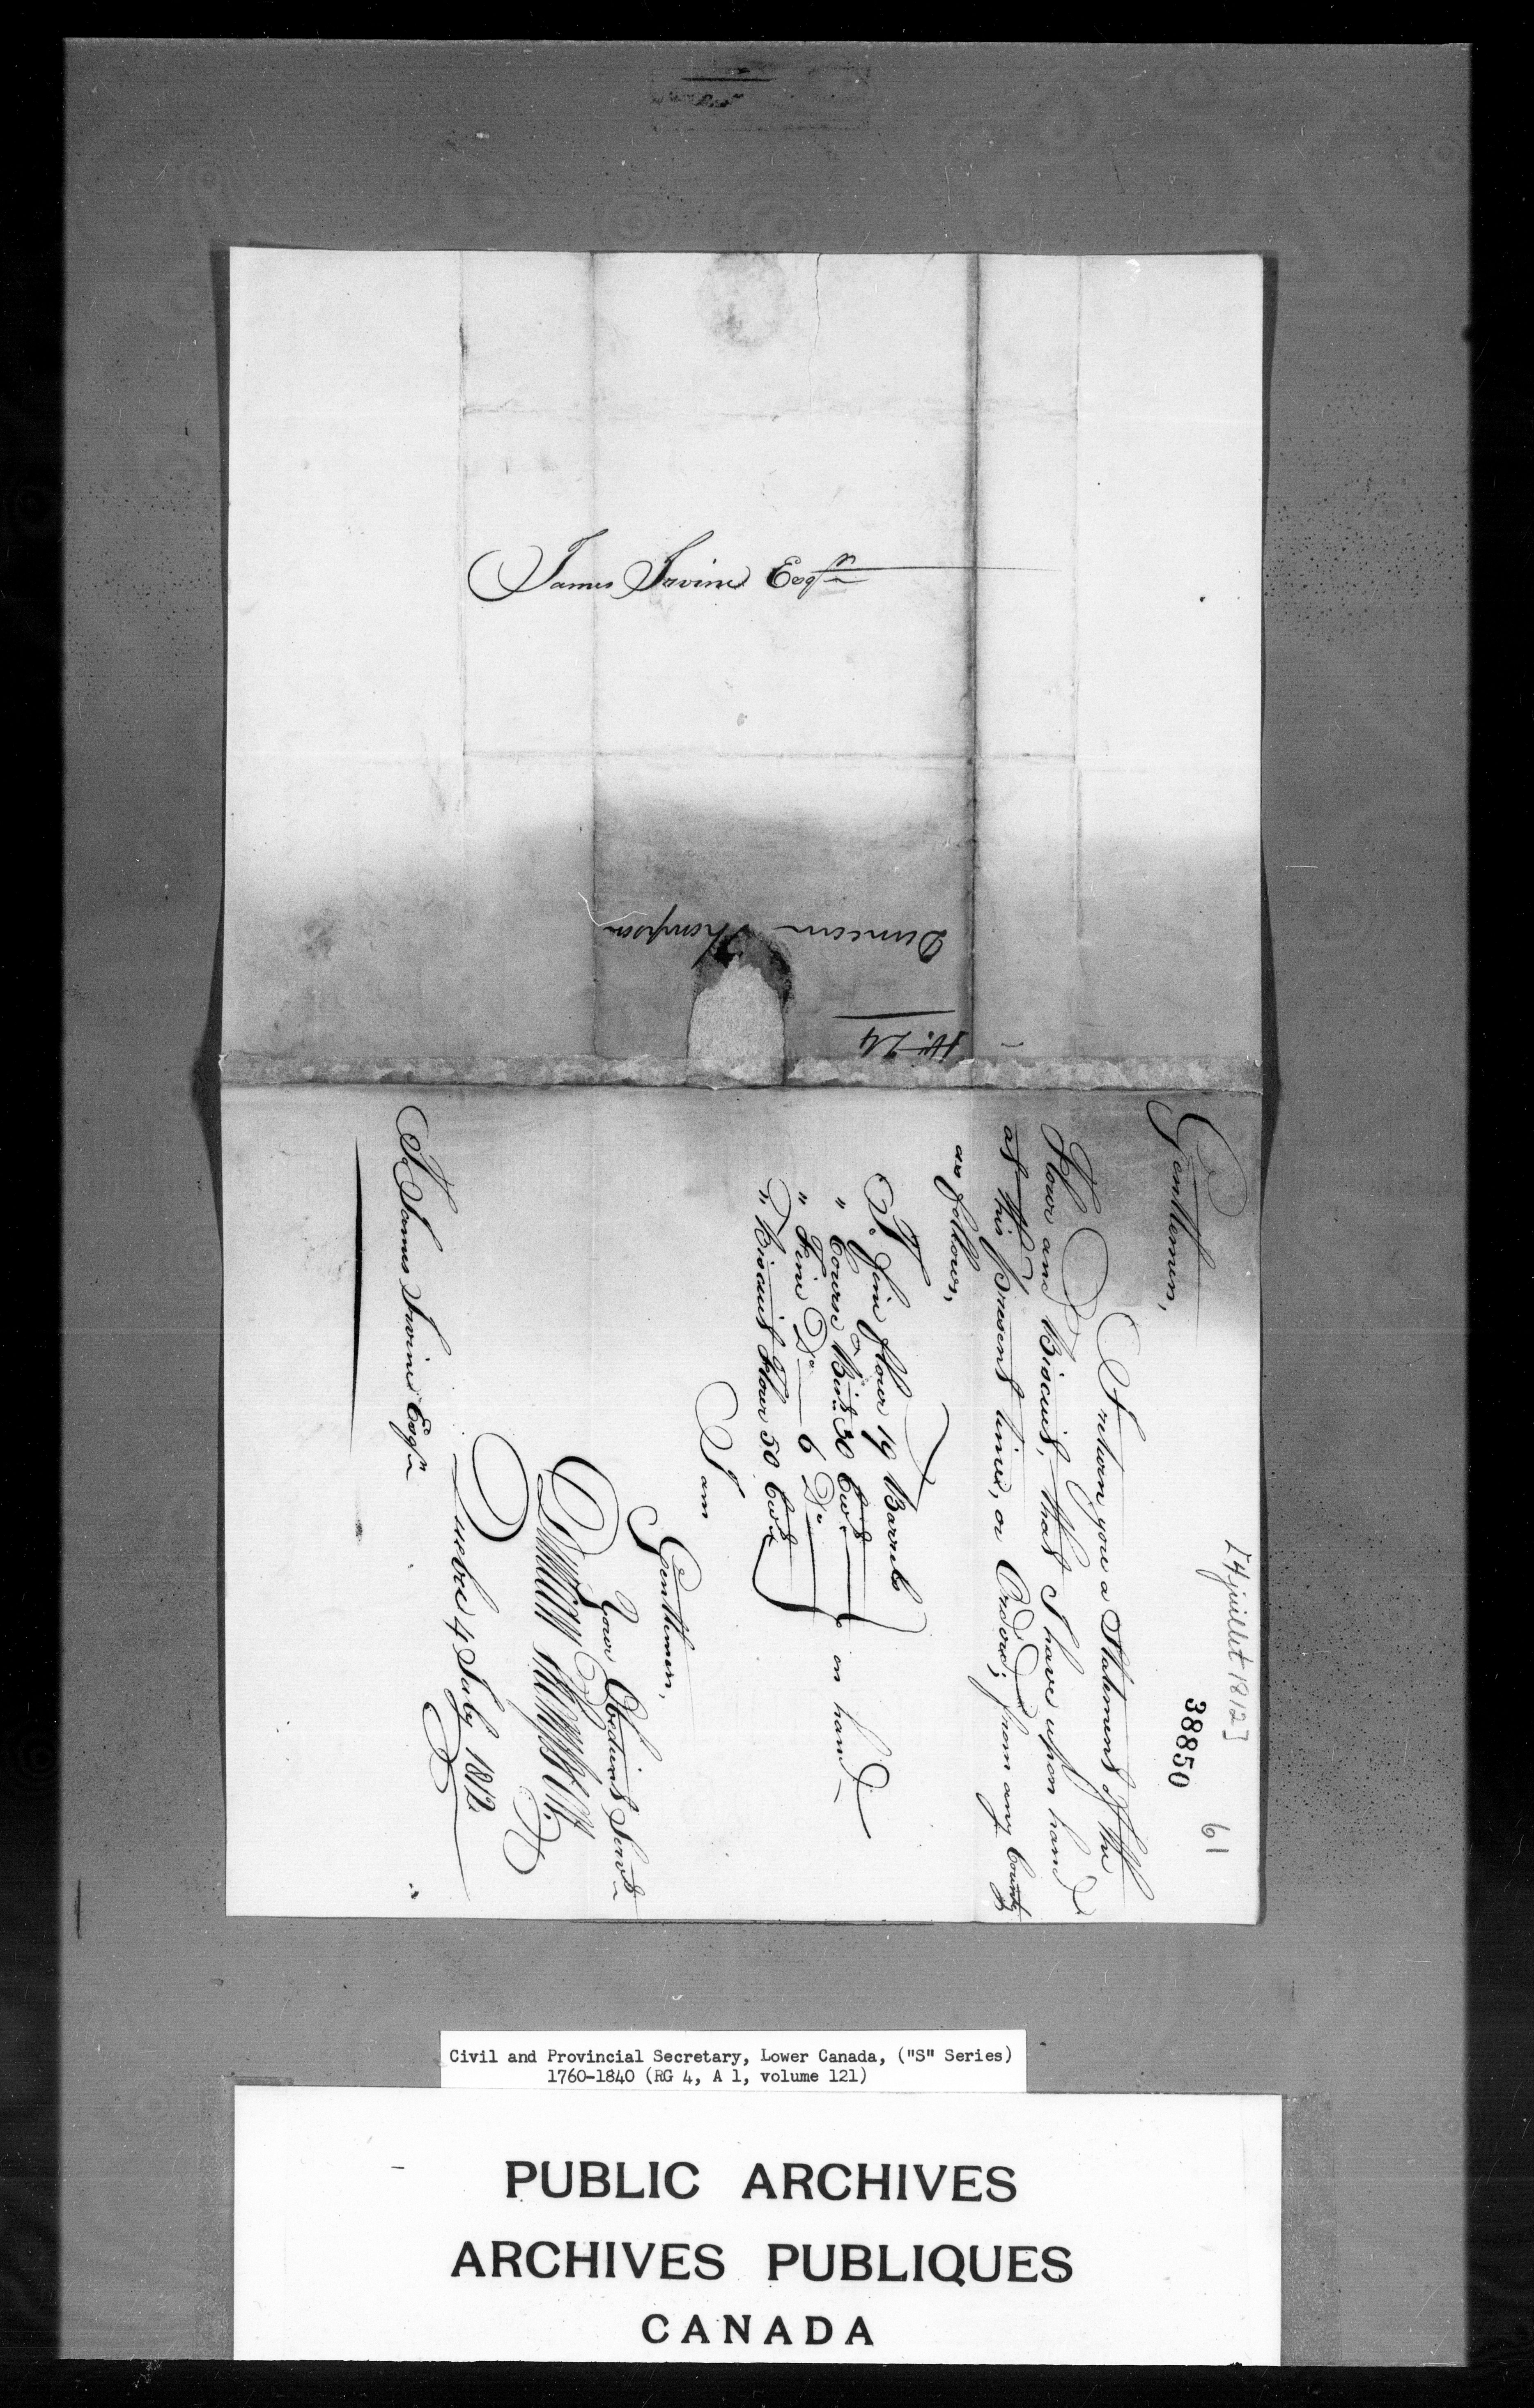 James Irvine Esqr
Duncan Thompson
No. 24
[4 juillet 1812]
38850
61
Gentlemen,
I return you a Statement of the
Flour and Biscuit, that I have upon hand
at this present time, or Orders, from any County
as follows,
To fine flour 19 Barrels
" Course Bist. 30 Cwt
" Fine Do — 6 Do
" Biscuit Flour 50 Cwt
on hand
I am
Gentlemen,
Your Obedient Servt
Duncan Thompson
Quebec 4 July 1812
To James Irvine Esqr
Civil and Provincial Secretary, Lower Canada, ("S" Series)
1760-1840 (RG 4, A 1, volume 121)
PUBLIC ARCHIVES
ARCHIVES PUBLIQUES
CANADA